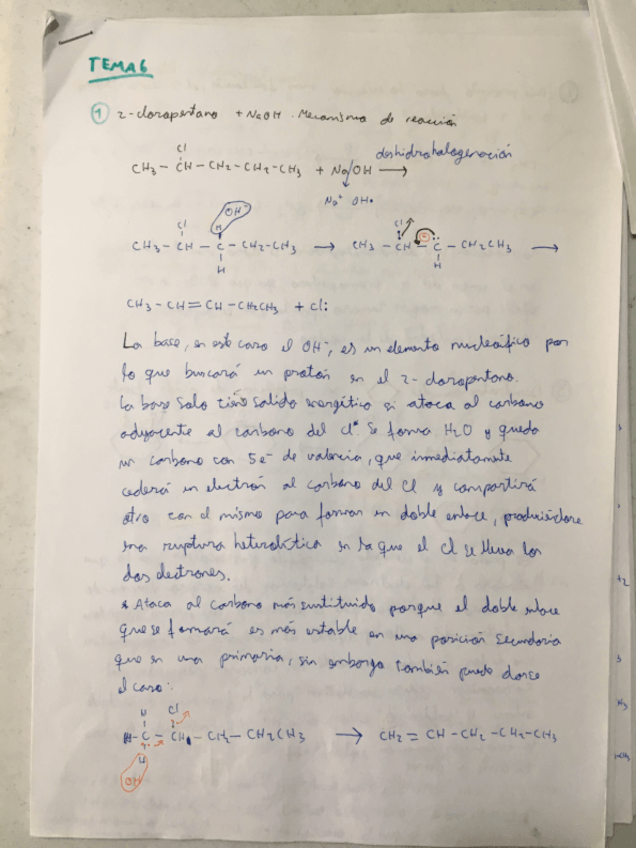 TEMA 6
1 2-cloropentano + NaOH. Mecanismo de reacción
Cl
deshidrohalogenación
CH3 - CH - CH2 - CH2 - CH3 + Na/OH →
Na+ OH•
OH-
Cl H Cl
CH3 - CH - C - CH2 - CH3 → CH3 - CH - C - CH2CH3 →
H H
CH3 - CH = CH - CH2CH3 + Cl:
La base, en este caso el OH-, es un elemento nucleófilo por
lo que buscará un protón en el 2-cloropentano.
La base solo tiene salido energético si ataca al carbono
adyacente al carbono del Cl*. Se forma H2O y queda
un carbono con 5e- de valencia, que inmediatamente
cederá un electrón al carbono del Cl y compartirá
otro con el mismo para formar un doble enlace, produciéndose
una ruptura heterolítica en la que el Cl se lleva los
dos electrones.
* Ataca al carbono más sustituido porque el doble enlace
que se formará es más estable en una posición secundaria
que en una primaria, sin embargo también puede darse
el caso:
H Cl
H - C - CH - CH2 - CH2CH3 → CH2 = CH - CH2 - CH2 - CH3
H
OH